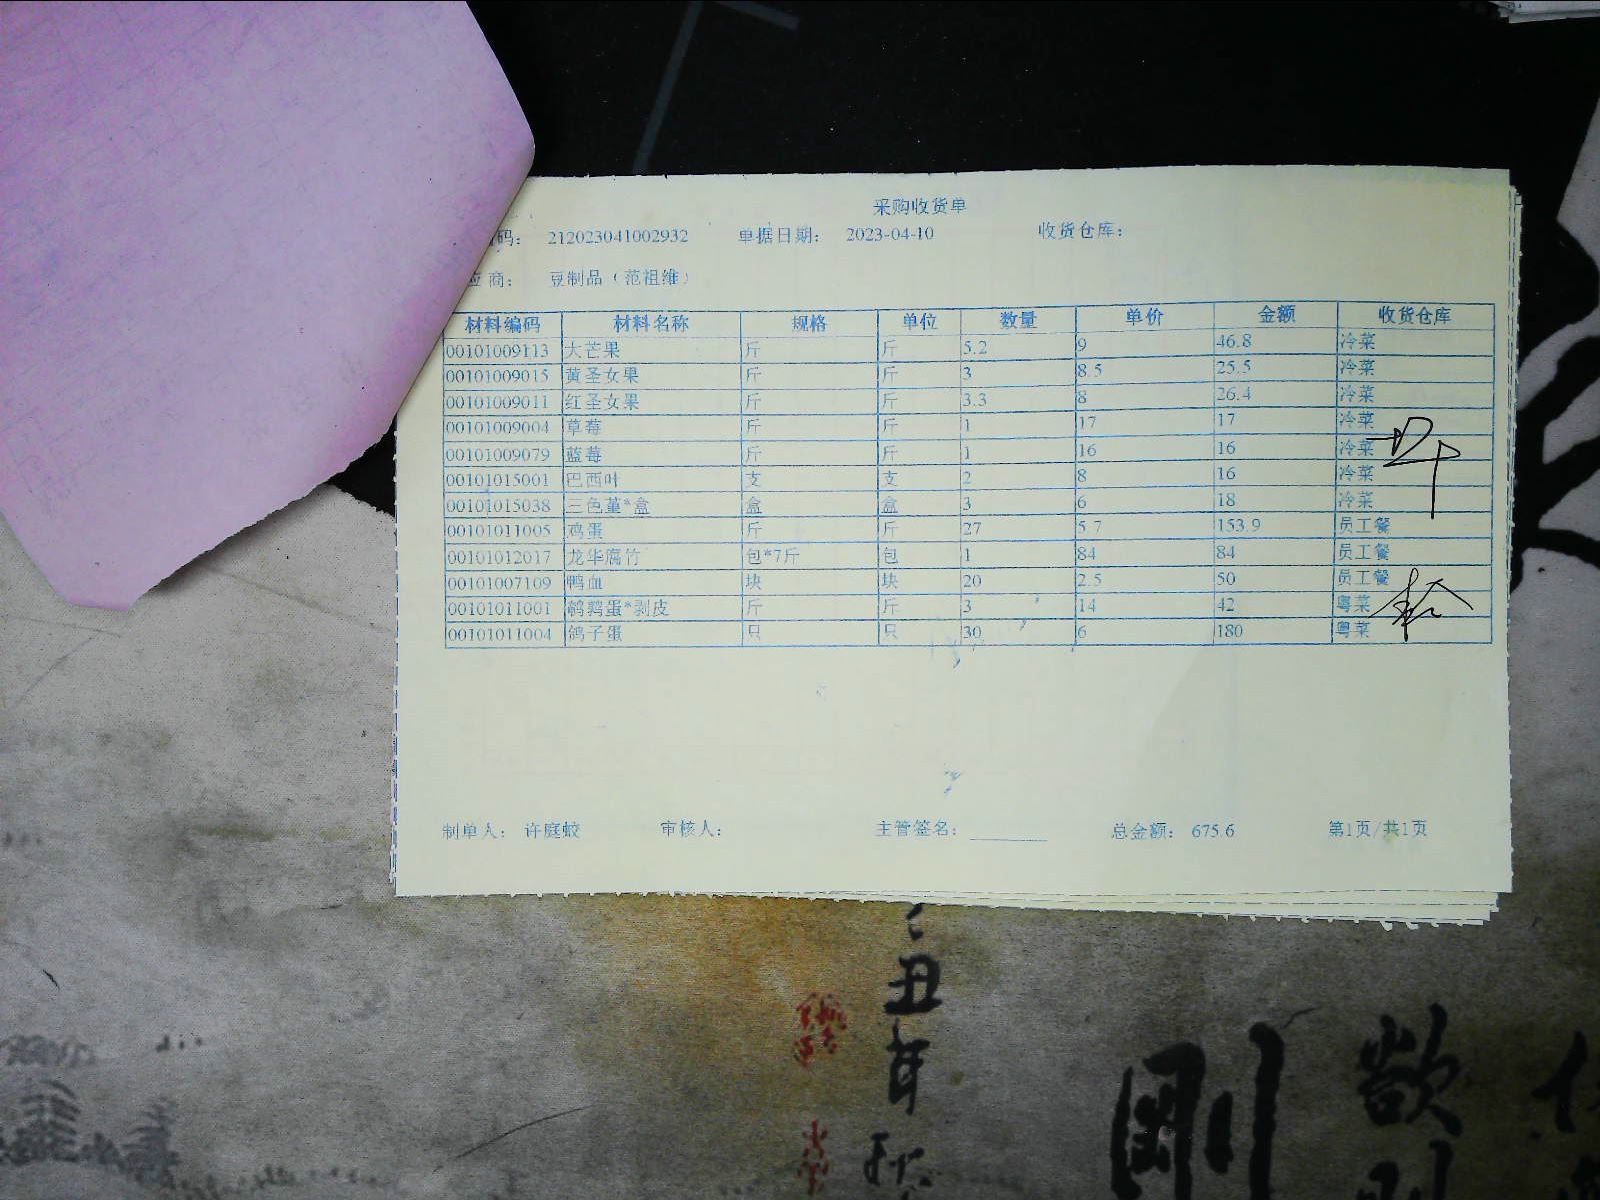 采购收货单
码： 212023041002932 单据日期： 2023-04-10 收货仓库：
应商： 豆制品（范祖维）
材料编码 材料名称 规格 单位 数量 单价 金额 收货仓库
00101009113 大芒果 斤 斤 5.2 9 46.8 冷菜
00101009015 黄圣女果 斤 斤 3 8.5 25.5 冷菜
00101009011 红圣女果 斤 斤 3.3 8 26.4 冷菜
00101009004 草莓 斤 斤 1 17 17 冷菜
00101009079 蓝莓 斤 斤 1 16 16 冷菜
00101015001 巴西叶 支 支 2 8 16 冷菜
00101015038 三色堇*盒 盒 盒 3 6 18 冷菜
00101011005 鸡蛋 斤 斤 27 5.7 153.9 员工餐
00101012017 龙华腐竹 包*7斤 包 1 84 84 员工餐
00101007109 鸭血 块 块 20 2.5 50 员工餐
00101011001 鹌鹑蛋*剥皮 斤 斤 3 14 42 粤菜
00101011004 鸽子蛋 只 只 30 6 180 粤菜
制单人： 许庭蛟 审核人： 主管签名： 总金额： 675.6 第1页/共1页
丑年秋
剛
欲